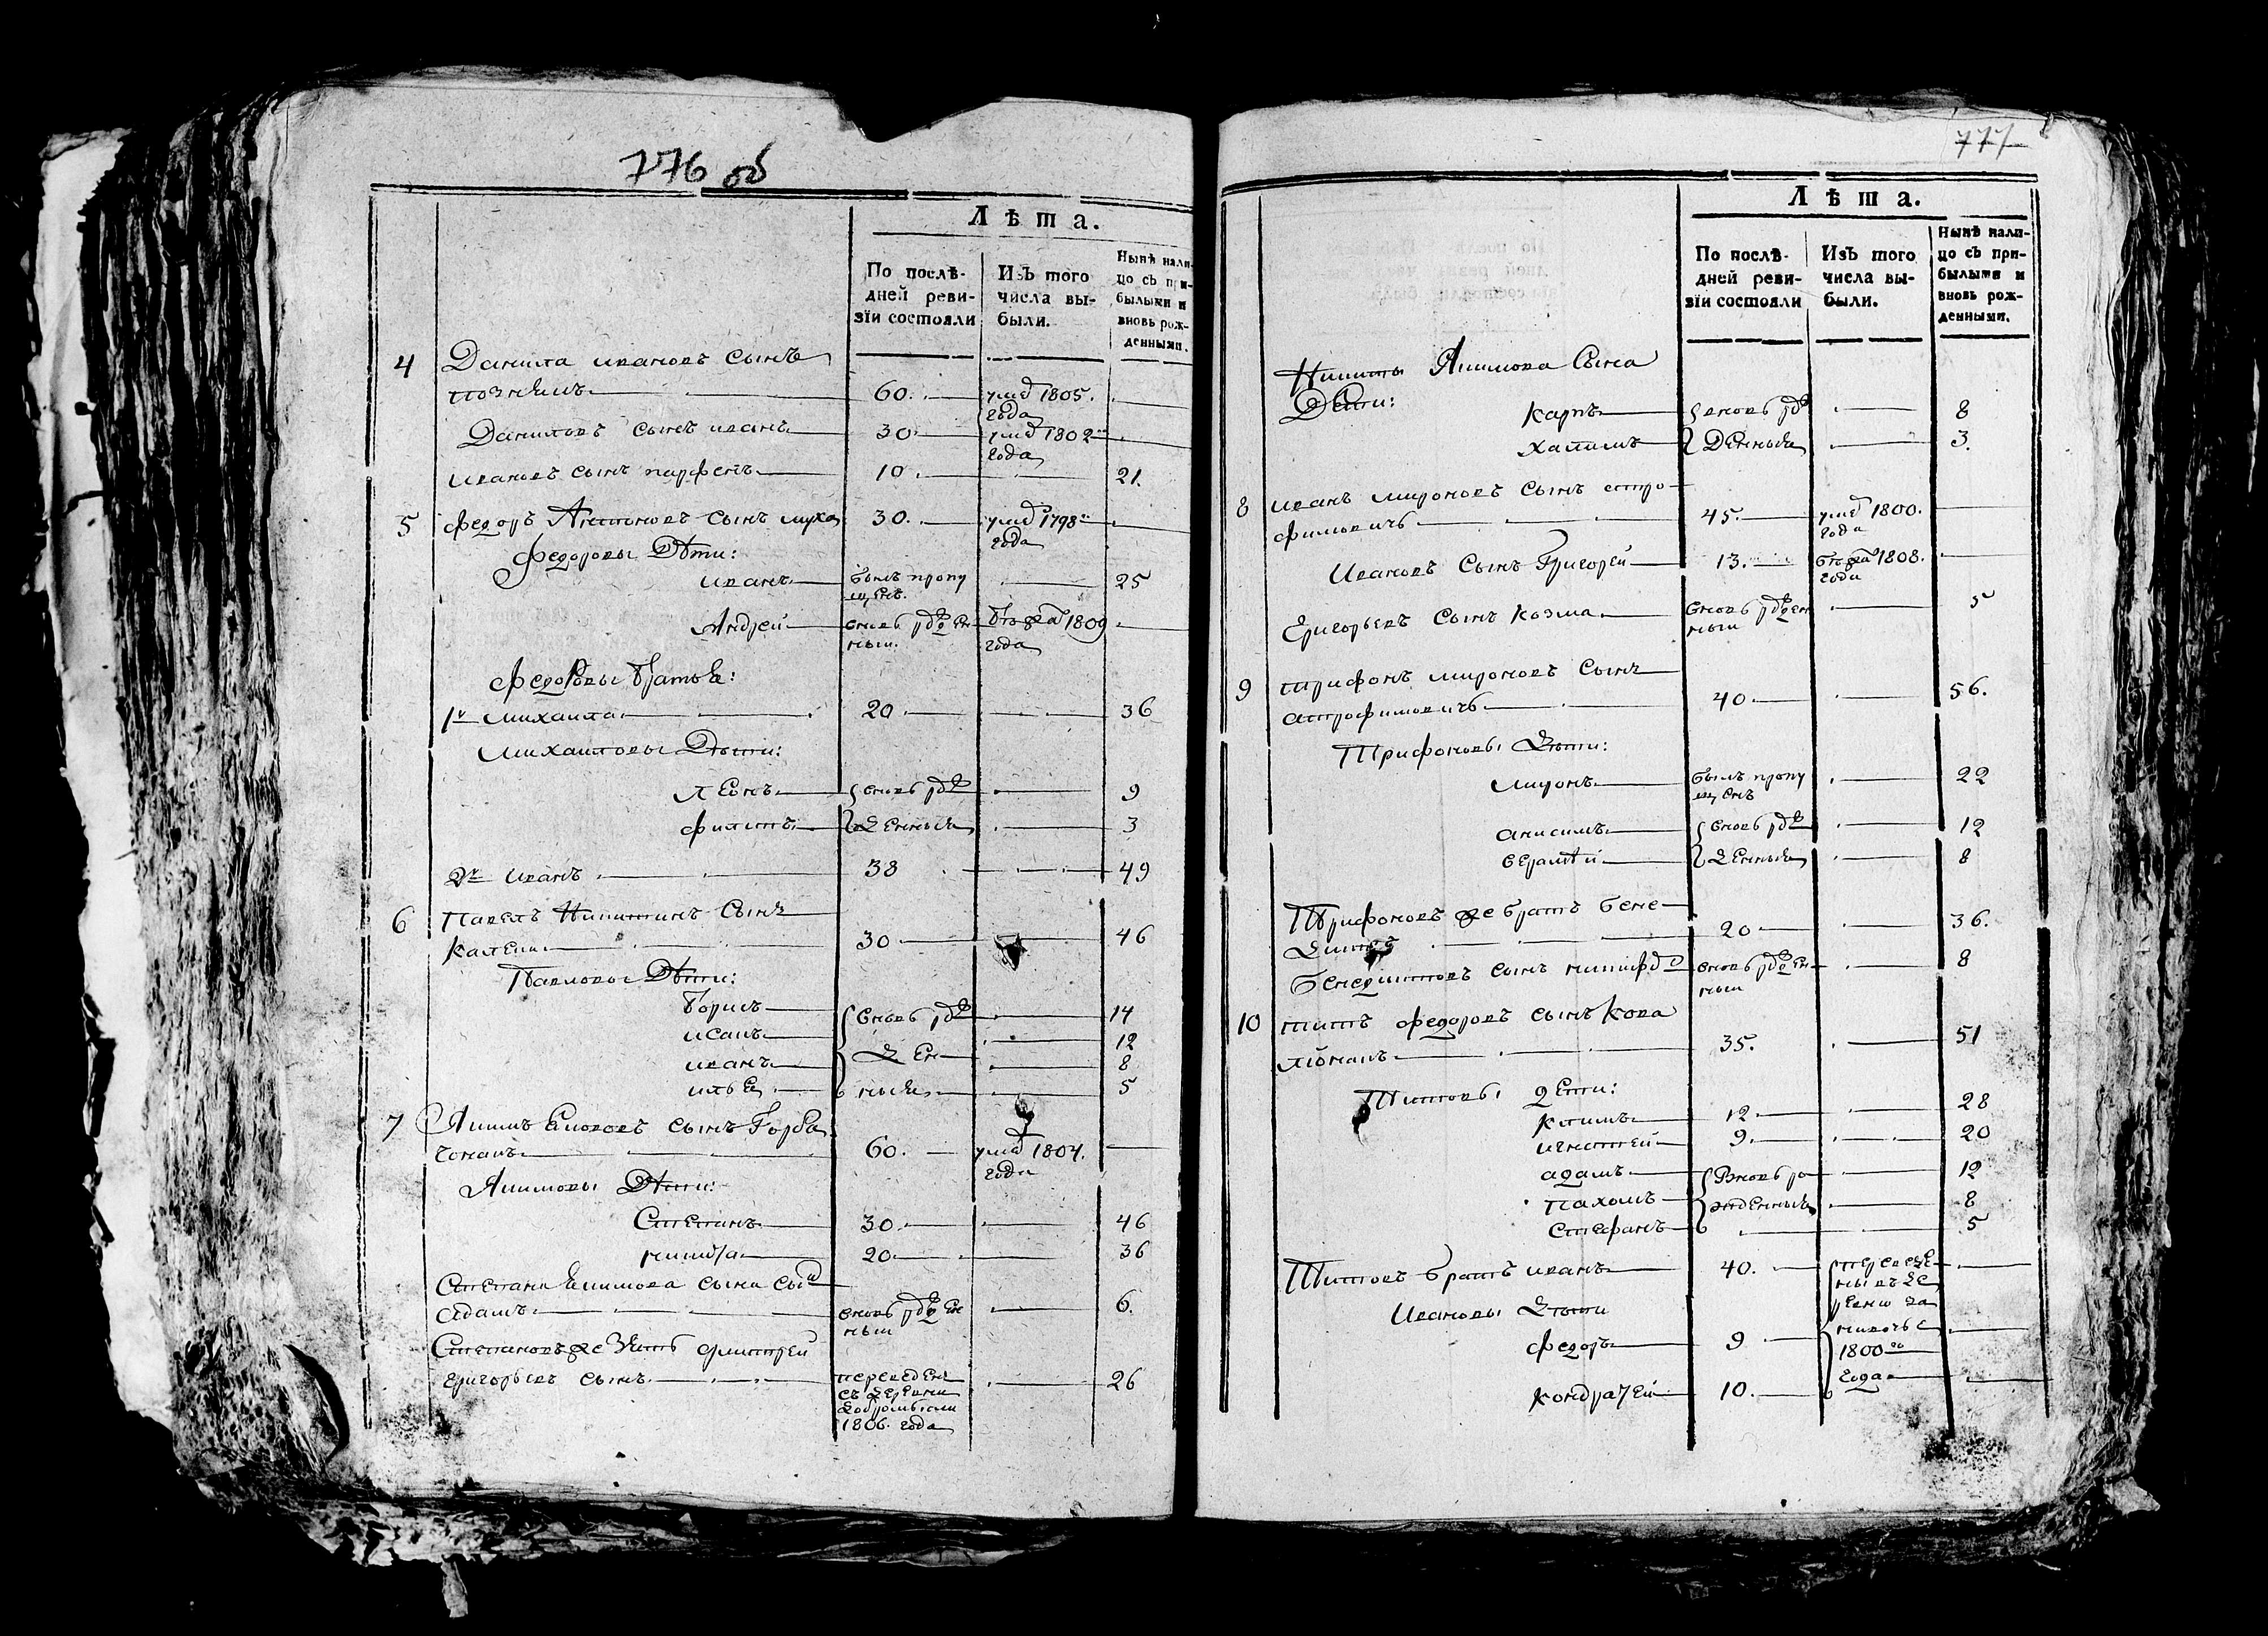 776 об
Лѣта.
По послѣ-
дней реви-
зїи состояли
Изъ того
числа вы-
были.
Нынѣ нали-
цо съ при-
былыми и
вновь рож-
денными.
4 Данила ивановъ сынъ
познякъ 60. умер 1805.
года
Даниловъ сынъ иванъ 30 умер 1802
года
ивановъ сынъ парфенъ 10 21.
5 федоръ Антоновъ сынъ муха 30. умер 1798
года
федоровы Дѣти:
иванъ былъ пропу 25
щенъ.
Андрей вновь рожден бѣжал 1809
ныи. года
федоровы братья:
1й михаила 20 36
михаиловы Дѣти:
леонъ вновь рож 9
филипъ денныя 3
2й иванъ 38 49
6 Павелъ Никитинъ Сынъ
калени 30 46
Павловы Дѣти:
борисъ вновь рож 14
исакъ 12
иванъ ден 8
илья ныя 5
7 Якимъ сынъ Горба
чонакъ 60. умер 1804.
года
Якимовы Дѣти:
Степанъ 30 46
никита 20 36
Степана якимова сына сынъ
адамъ вновь рожден 6.
ныи
Степановъ же зять дмитреи
григорьевъ сынъ переведен 26
съ деревни
1806. года
777
Лѣта.
По послѣ-
дней реви-
зїи состояли
Изъ того
числа вы-
были.
Нынѣ нали-
цо съ при-
былыми и
вновь рож-
денными.
Никиты Якимова Сына
Дети: карпъ вновь рож 8
халимъ Денныя 3.
8 иванъ мироновъ сынъ етро
фимовичъ 45. умер 1800.
года
Ивановъ Сынъ Григорей 13. бѣжал 1808.
года
Григорьевъ сынъ козма вновь рожден 5
ныи
9 трифонъ мироновъ Сынъ
атрофимовичъ 40 56.
Трифоновы Дѣти:
миронъ былъ пропу 22
щенъ
анисимъ вновь рож 12
еремѣй денныя 8
Трифоновъ же братъ бене
диктъ 20 36.
бенедиктовъ сынъ никифор вновь рожден 8
ныи
10 титъ федоровъ сынъ кова
лионакъ 35. 51
Титовы дети:
климъ 12 28
игнатей 9. 20
адамъ Вновь ро 12
пахомъ жденныя 8
стефанъ 5
Титовъ братъ иванъ 40. переведе
ны въ де
ревню за
Ивановы Дѣти
федоръ 9
1800го
года
кондратей 10.